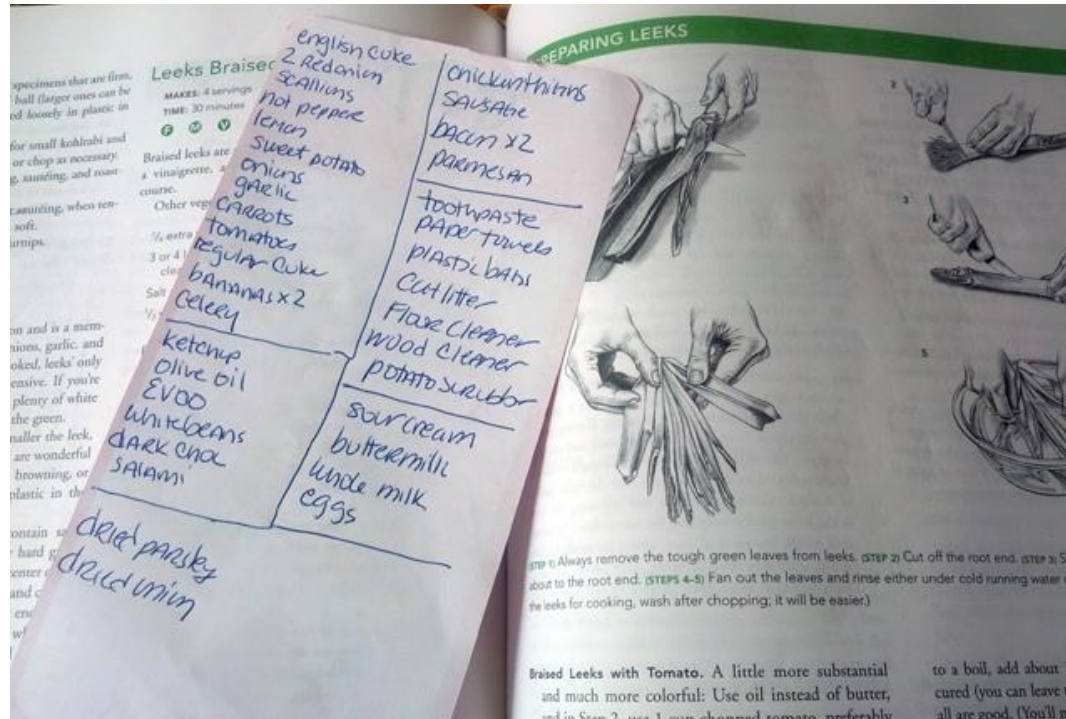 specimens that are firm,
ball (larger ones can be
ed loosely in plastic in
for small kohlrabi and
or chop as necessary.
g, sautéing, and roast-
sautéing, when ten-
soft.
urnips.
on and is a mem-
nions, garlic, and
oked, leeks' only
ensive. If you're
plenty of white
the green.
naller the leek,
are wonderful
browning, or
plastic in the
ontain
hard
enter
and
Leeks Braised
MAKES: 4 servings
TIME: 30 minutes
F M V
Braised leeks are
a vinaigrette,
course.
Other
extra
3 or 4
Salt
english cuke
2 Red onion
scallions
hot pepper
lemon
sweet potato
onions
garlic
CARROTS
tomatoes
regular cuke
bananas x 2
Celery
Ketchup
Olive oil
EVOO
white beans
dark choc
salami
dried parsley
dried onion
chicken thighs
sausage
bacon x2
parmesan
toothpaste
paper towels
plastic bags
Cat litter
Floor Cleaner
wood cleaner
potato scrubber
sour cream
buttermilk
whole milk
eggs
PREPARING LEEKS
2
3
5
(STEP 1) Always remove the tough green leaves from leeks. (STEP 2) Cut off the root end. (STEP 3)
about to the root end. (STEPS 4–5) Fan out the leaves and rinse either under cold running water
the leeks for cooking, wash after chopping; it will be easier.)
Braised Leeks with Tomato. A little more substantial
and much more colorful: Use oil instead of butter,
and in Step 2, use 1 cup chopped tomato, preferably
to a boil, add about
cured (you can leave
all are good. (You'll